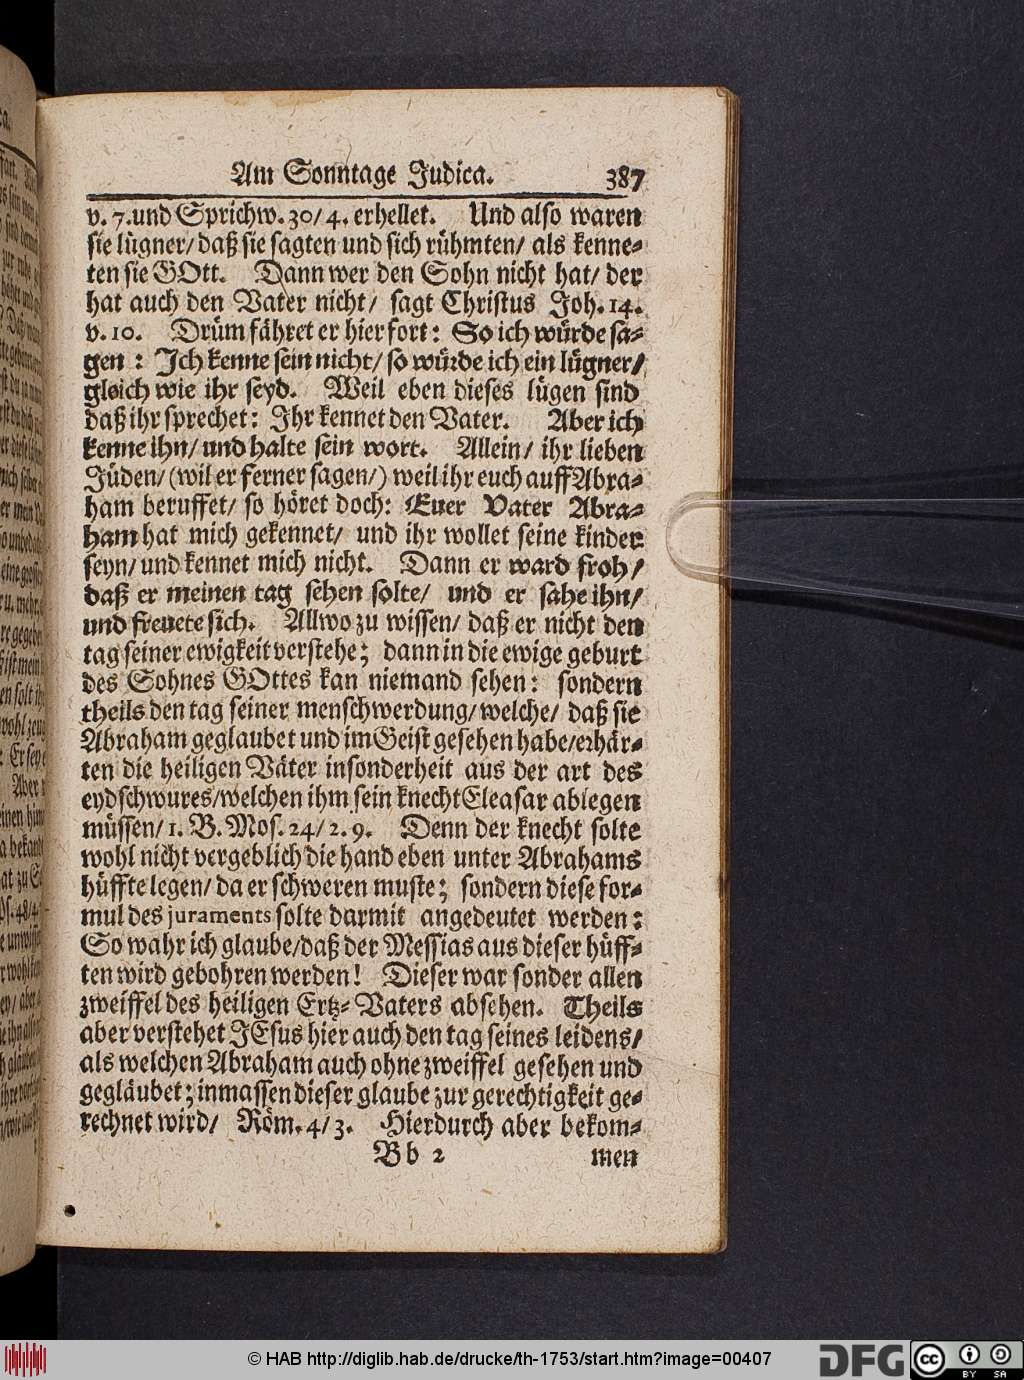 Am Sonntage Judica. 387
v. 7. und Sprichw. 30/4. erhellet. Und also waren
sie lügner/ daß sie sagten und sich rühmten/ als kenne-
ten sie GOtt. Dann wer den Sohn nicht hat/ der
hat auch den Vater nicht/ sagt Christus Joh. 14.
v. 10. Drüm fähret er hier fort: So ich würde sa-
gen: Ich kenne sein nicht/ so würde ich ein lügner/
gleich wie ihr seyd. Weil eben dieses lügen sind
daß ihr sprechet: Ihr kennet den Vater. Aber ich
kenne ihn/ und halte sein wort. Allein/ ihr lieben
Jüden/ (wil er ferner sagen/) weil ihr euch auff Abra-
ham beruffet/ so höret doch: Euer Vater Abra-
ham hat mich gekennet/ und ihr wollet seine kinder
seyn/ und kennet mich nicht. Dann er ward froh/
daß er meinen tag sehen solte/ und er sahe ihn/
und freuete sich. Allwo zu wissen/ daß er nicht den
tag seiner ewigkeit verstehe; dann in die ewige geburt
des Sohnes GOttes kan niemand sehen: sondern
theils den tag seiner menschwerdung/ welche/ daß sie
Abraham geglaubet und im Geist gesehen habe/ erhär-
ten die heiligen Väter insonderheit aus der art des
eydschwures/ welchen ihm sein knecht Eleasar ablegen
müssen/ 1. B. Mos. 24/2. 9. Denn der knecht solte
wohl nicht vergeblich die hand eben unter Abrahams
hüffte legen/ da er schweren muste; sondern diese for-
mul des juraments solte darmit angedeutet werden:
So wahr ich glaube/ daß der Messias aus dieser hüff-
ten wird gebohren werden! Dieser war sonder allen
zweiffel des heiligen Ertz-Vaters absehen. Theils
aber verstehet JEsus hier auch den tag seines leidens/
als welchen Abraham auch ohne zweiffel gesehen und
gegläubet; inmassen dieser glaube zur gerechtigkeit ge-
rechnet wird/ Röm. 4/3. Hierdurch aber bekom-
Bb 2 men
© HAB http://diglib.hab.de/drucke/th-1753/start.htm?image=00407 DFG cc BY SA